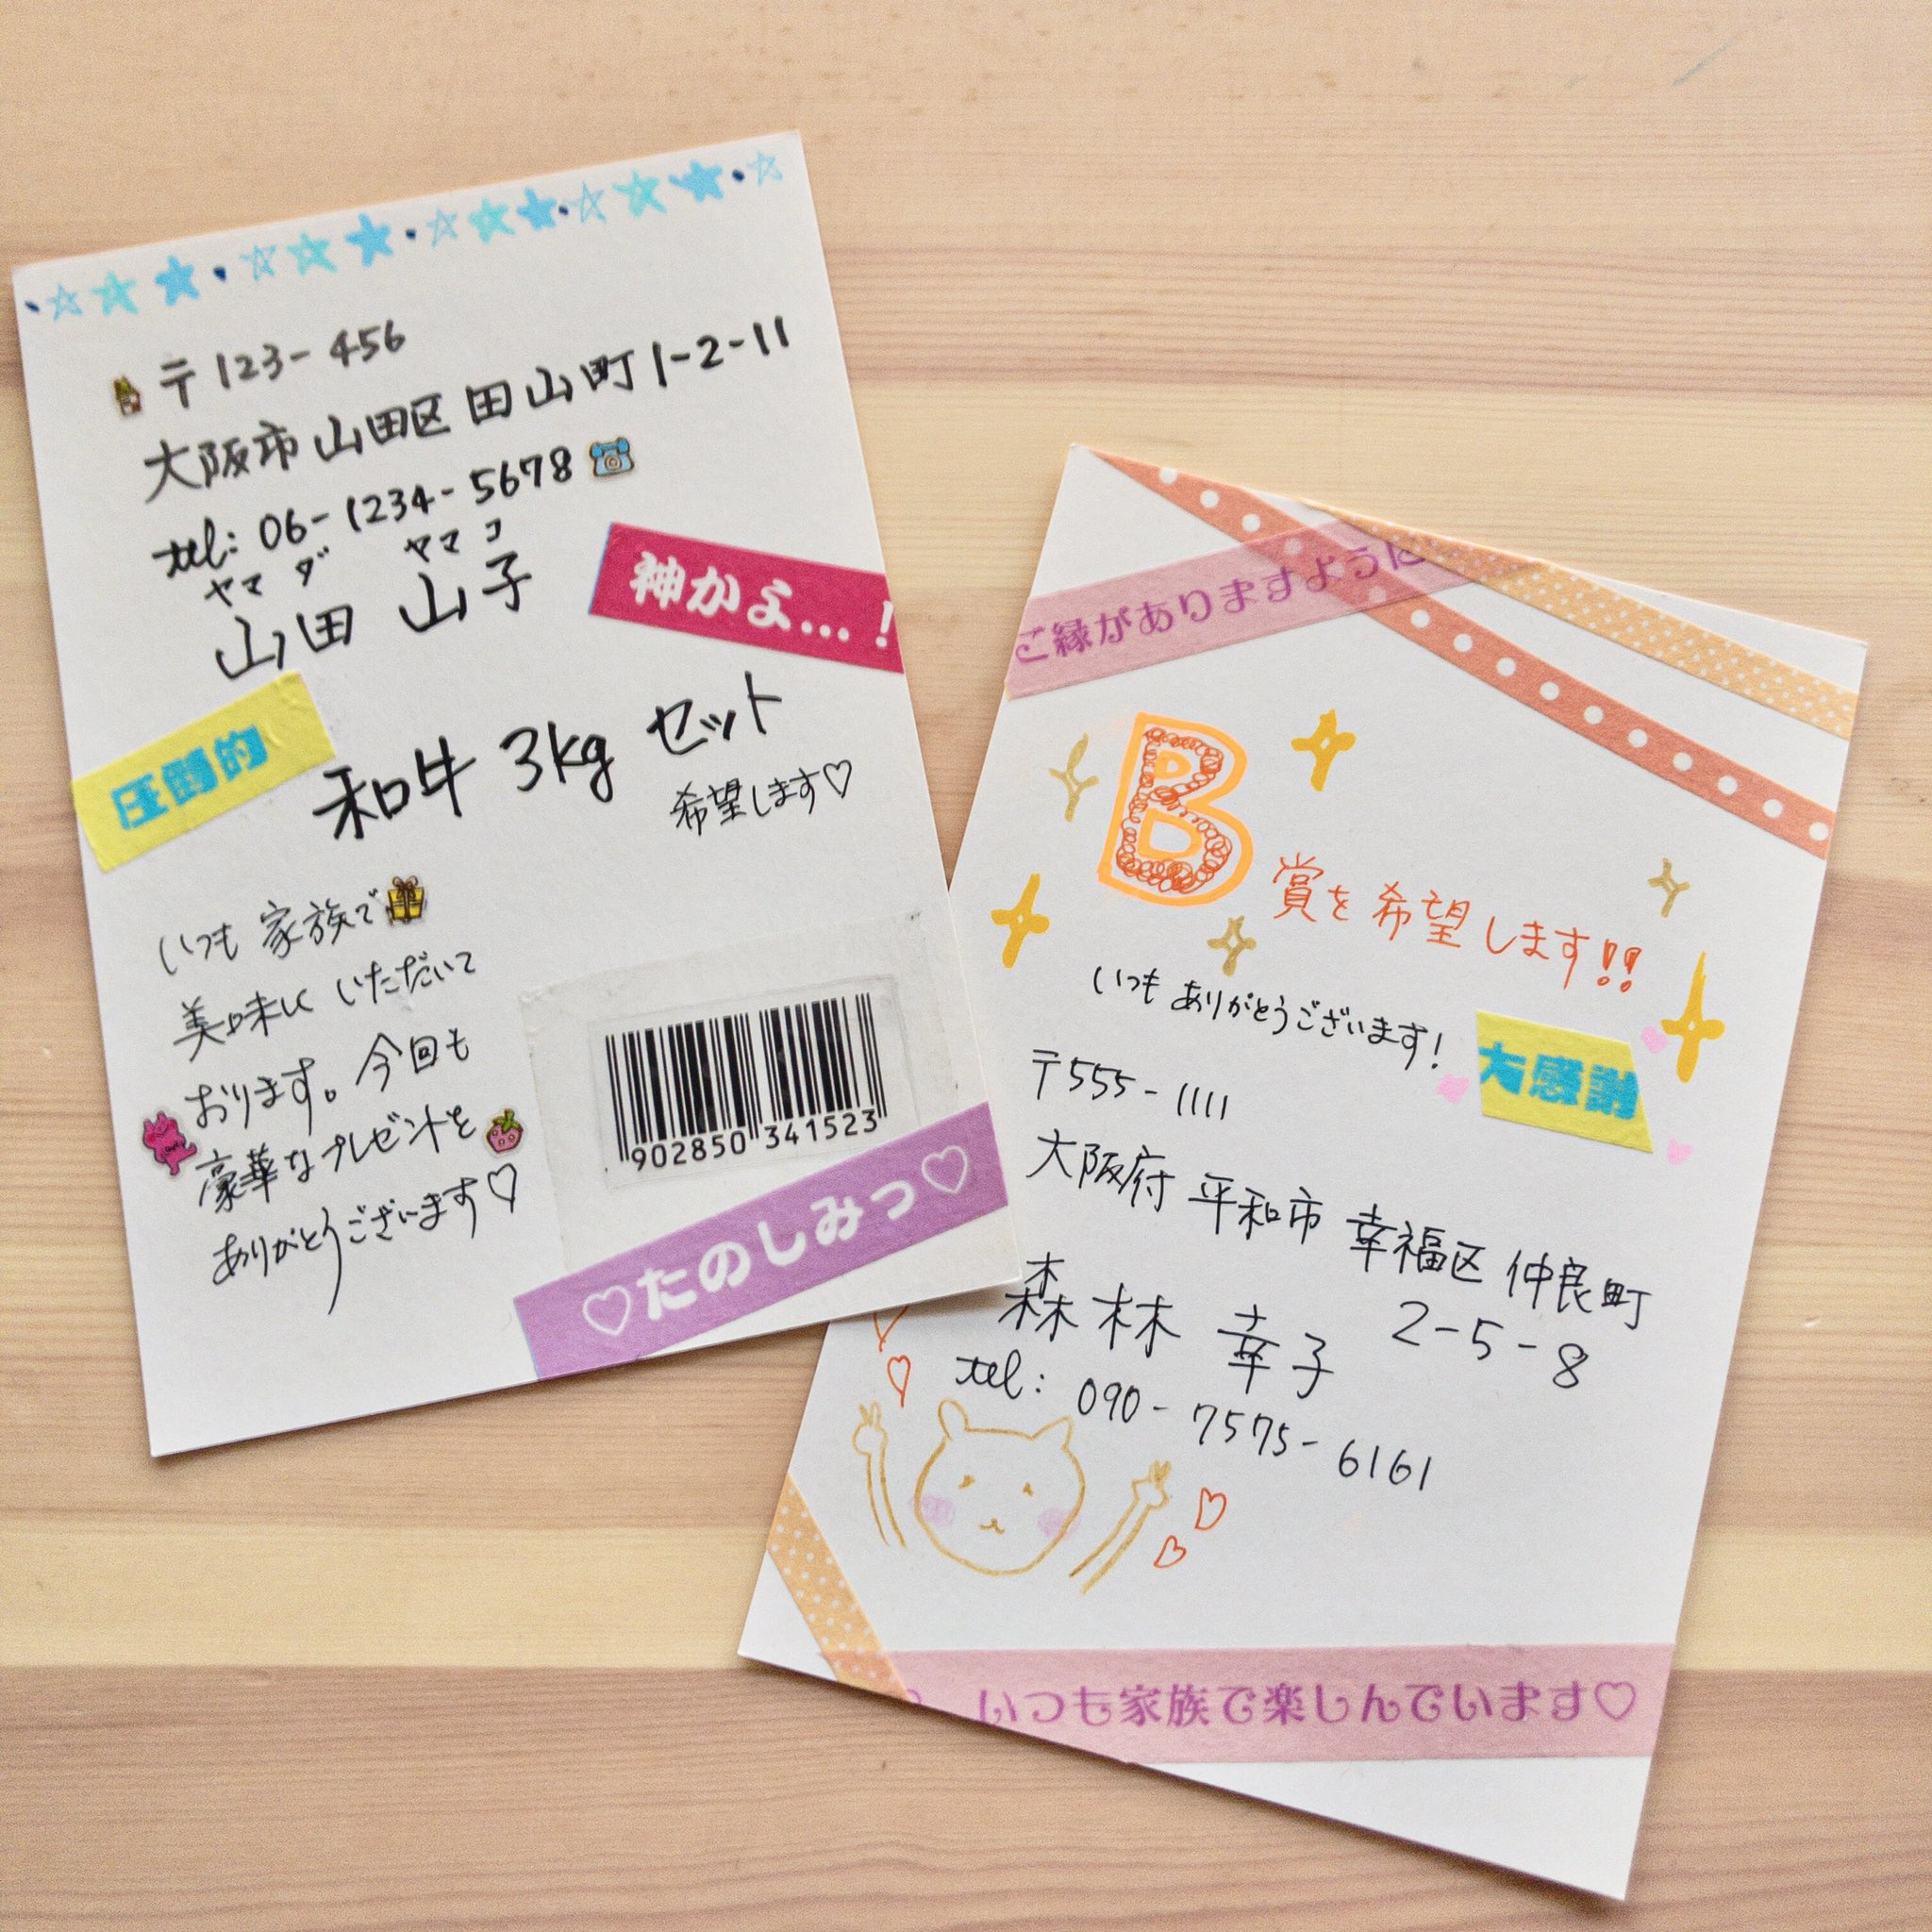 〒123-456
大阪市山田区田山町1-2-11
tel: 06-1234-5678
ヤマ ダ ヤマ コ
山田 山子
神かよ…!
圧倒的
和牛 3kg セット
希望します♡
いつも 家族で
美味しく いただいて
おります。今回も
豪華なプレゼントを
ありがとうございます♡
902850 341523
♡たのしみっ♡
ご縁がありますように
B賞を希望します!!
いつも ありがとうございます!
大感謝
〒555-1111
大阪府 平和市 幸福区 仲良町
2-5-8
森林 幸子
tel: 090-7575-6161
いつも家族で楽しんでいます♡